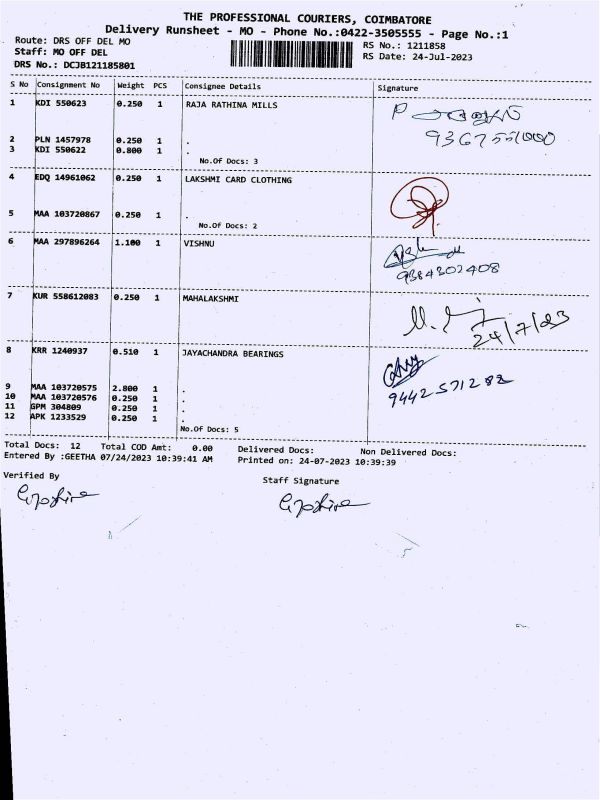 THE PROFESSIONAL COURIERS, COIMBATORE
Delivery Runsheet - MO - Phone No.:0422-3505555 - Page No.:1
Route: DRS OFF DEL MO RS No.: 1211858
Staff: MO OFF DEL RS Date: 24-Jul-2023
DRS No.: DCJB121185801
S No Consignment No Weight PCS Consignee Details Signature
1 KDI 550623 0.250 1 RAJA RATHINA MILLS
2 PLN 1457978 0.250 1 .
3 KDI 550622 0.800 1 .
No.Of Docs: 3
4 EDQ 14961062 0.250 1 LAKSHMI CARD CLOTHING
5 MAA 103720867 0.250 1 .
No.Of Docs: 2
6 MAA 297896264 1.100 1 VISHNU
9384302408
7 KUR 558612083 0.250 1 MAHALAKSHMI
24/7/23
8 KRR 1240937 0.510 1 JAYACHANDRA BEARINGS
9442571282
9 MAA 103720575 2.800 1 .
10 MAA 103720576 0.250 1 .
11 GPM 304809 0.250 1 .
12 APK 1233529 0.250 1 .
No.Of Docs: 5
Total Docs: 12 Total COD Amt: 0.00 Delivered Docs: Non Delivered Docs:
Entered By :GEETHA 07/24/2023 10:39:41 AM Printed on: 24-07-2023 10:39:39
Verified By Staff Signature